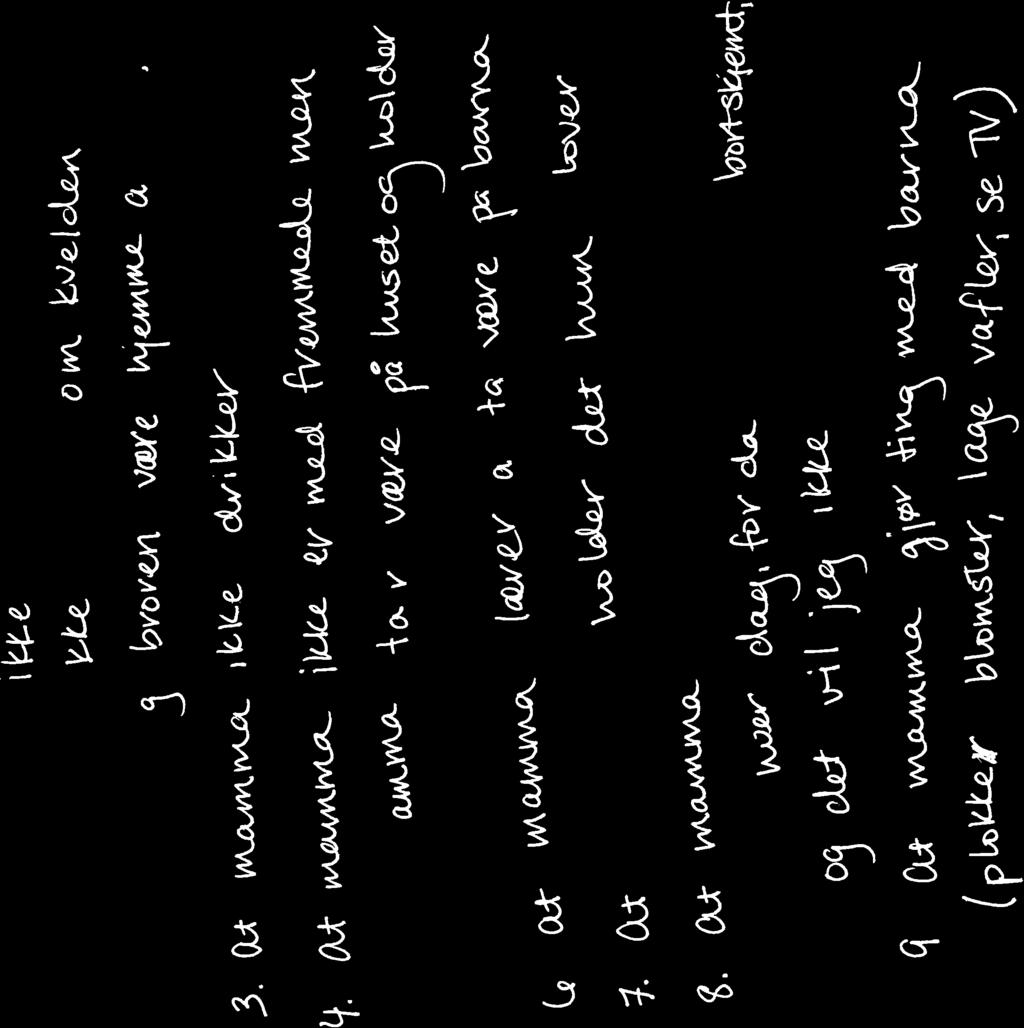 ikke
kke om kvelden
g broren være hjemme a
3. at mamma ikke drikker
4. at mamma ikke er med fremmede men
amma tar være på huset og holder
6 at mamma lærer a ta være på barna
7. at holder det hun lover
8. at mamma bortskjemt,
hver dag, for da
og det vil jeg ikke
9 at mamma gjør ting med barna
(plokker blomster, lage vafler, se TV)